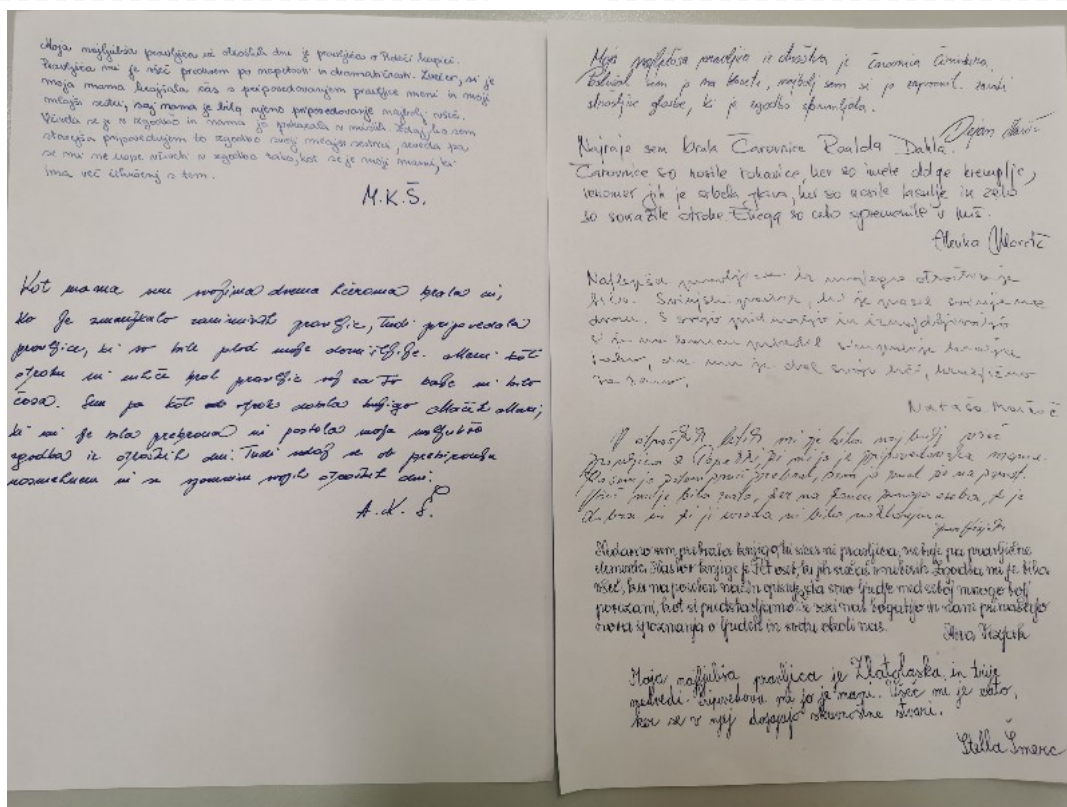 Moja najljubša pravljica iz otroških dni je pravljica o Rdeči kapici.
Pravljica mi je všeč predvsem po napetosti in dramatičnosti. Zvečer, si je
moja mama krajšala čas s pripovedovanjem pravljice meni in moji
mlajši sestri, saj nama je bilo njeno pripovedovanje najbolj všeč.
Vživela se je v zgodbo in nama jo prikazala v mislih. Zdaj, ko sem
starejša pripovedujem to zgodbo svoji mlajši sestrici, seveda pa
se mi ne uspe vživeti v zgodbo tako, kot se je moji mami, ki
ima več izkušenj s tem.
M.K.Š.
Kot mama sem svojima dvema hčerama brala in,
ko je zmanjkalo zanimivih pravljic, tudi pripovedala
pravljice, ki so bile plod moje domišljije. Meni kot
otroku ni nihče bral pravljic saj za to kaže ni bilo
časa. Sem pa kot otrok dobila knjigo Maček Muri,
ki mi je bila prebrana in postala moja najljubša
zgodba iz otroških dni. Tudi sedaj se ob prebiranju
nasmehnem in se spomnim svojih otroških dni.
A.K.Š.
Moja najljubša pravljica iz otroštva je čarovnica
Poslušal sem jo na kaseti, najbolj sem si jo zapomnil zaradi
strašljive glasbe, ki je zgodbo spremljala.
Dejan
Najraje sem brala Čarovnice Roalda Dahla.
Čarovnice so nosile rokavice, ker so imele dolge kremplje,
venomer jih je srbela glava, ker so nosile lasulje in zelo
so sovražile otroke. Enega so celo spremenile v miš.
Alenka
Najlepša pravljica iz mojega otroštva je
bila Svinjski pastir, ki je pasel svinje na
dvoru. S svojo pridnostjo in iznajdljivostjo
je
da mu je dal svojo hčer,
za ženo.
Nataša
V otroških letih mi je bila najbolj všeč
pravljica o Pepelki, ki mi jo je pripovedovala mama.
Ko sem jo potem prvič prebral, sem jo znal že na pamet.
Všeč mi je bila zato, ker na koncu zmaga oseba, ki je
dobra in ki ji usoda ni bila naklonjena.
Nedavno sem prebrala knjigo, ki sicer ni pravljica, vsebuje pa pravljične
elemente. Naslov knjige je Pet oseb, ki jih srečaš v nebesih. Zgodba mi je bila
všeč, ker na poseben način opisuje, da smo ljudje med seboj mnogo bolj
povezani, kot si predstavljamo in vezi nas bogatijo in nam prinašajo
nova spoznanja o ljudeh in svetu okoli nas.
Moja najljubša pravljica je Zlatolaska in trije
medvedi. Pripovedovala mi jo je mami. Všeč mi je zato,
ker se v njej dogajajo skrivnostne stvari.
Stella Šmerc